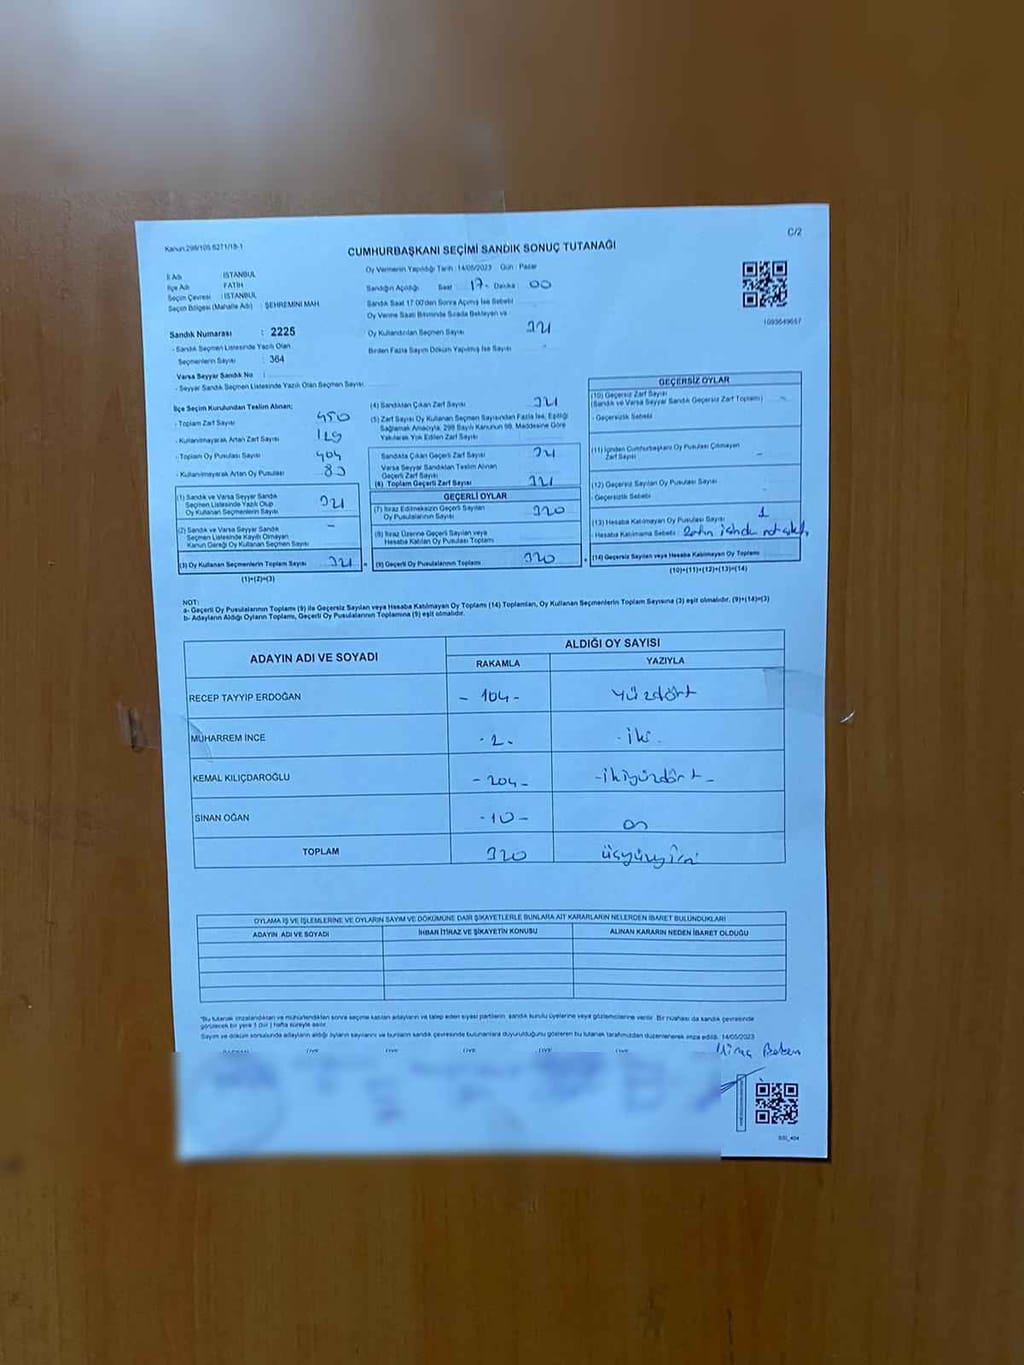 Kanun:298/105.6271/18-1
C/2
CUMHURBAŞKANI SEÇİMİ SANDIK SONUÇ TUTANAĞI
İl Adı : İSTANBUL
İlçe Adı : FATİH
Seçim Çevresi : İSTANBUL
Seçim Bölgesi (Mahalle Adı) : ŞEHREMİNİ MAH.
Sandık Numarası : 2225
- Sandık Seçmen Listesinde Yazılı Olan
Seçmenlerin Sayısı : 364
Varsa Seyyar Sandık No :
- Seyyar Sandık Seçmen Listesinde Yazılı Olan Seçmen Sayısı:
Oy Vermenin Yapıldığı Tarih : 14/05/2023 Gün : Pazar
Sandığın Açıldığı Saat : 17- Dakika : 00
Sandık Saat 17:00'den Sonra Açılmış İse Sebebi
Oy Verme Saati Bitiminde Sırada Bekleyen ve
Oy Kullandırılan Seçmen Sayısı : 321
Birden Fazla Sayım Döküm Yapılmış İse Sayısı : -
1093649657
İlçe Seçim Kurulundan Teslim Alınan;
- Toplam Zarf Sayısı : 450
- Kullanılmayarak Artan Zarf Sayısı : 129
- Toplam Oy Pusulası Sayısı : 404
- Kullanılmayarak Artan Oy Pusulası : 83
(1) Sandık ve Varsa Seyyar Sandık
Seçmen Listesinde Yazılı Olup
Oy Kullanan Seçmenlerin Sayısı 321
(2) Sandık ve Varsa Seyyar Sandık
Seçmen Listesinde Kayıtlı Olmayan
Kanun Gereği Oy Kullanan Seçmen Sayısı -
(3) Oy Kullanan Seçmenlerin Toplam Sayısı 321
(1)+(2)=(3)
(4) Sandıktan Çıkan Zarf Sayısı : 321
(5) Zarf Sayısı Oy Kullanan Seçmen Sayısından Fazla İse, Eşitliği
Sağlamak Amacıyla, 298 Sayılı Kanunun 98. Maddesine Göre
Yakılarak Yok Edilen Zarf Sayısı
Sandıkta Çıkan Geçerli Zarf Sayısı : 321
Varsa Seyyar Sandıktan Teslim Alınan
Geçerli Zarf Sayısı
(6) Toplam Geçerli Zarf Sayısı : 321
GEÇERLİ OYLAR
(7) İtiraz Edilmeksizin Geçerli Sayılan
Oy Pusulalarının Sayısı 320
(8) İtiraz Üzerine Geçerli Sayılan veya
Hesaba Katılan Oy Pusulası Toplamı
(9) Geçerli Oy Pusulalarının Toplamı 320
GEÇERSİZ OYLAR
(10) Geçersiz Zarf Sayısı
(Sandık ve Varsa Seyyar Sandık Geçersiz Zarf Toplamı) : -
- Geçersizlik Sebebi :
(11) İçinden Cumhurbaşkanı Oy Pusulası Çıkmayan
Zarf Sayısı : -
(12) Geçersiz Sayılan Oy Pusulası Sayısı : -
- Geçersizlik Sebebi
(13) Hesaba Katılmayan Oy Pusulası Sayısı : 1
- Hesaba Katılmama Sebebi :
(14) Geçersiz Sayılan veya Hesaba Katılmayan Oy Toplamı
(10)+(11)+(12)+(13)=(14)
NOT:
a- Geçerli Oy Pusulalarının Toplamı (9) ile Geçersiz Sayılan veya Hesaba Katılmayan Oy Toplamı (14) Toplamları, Oy Kullanan Seçmenlerin Toplam Sayısına (3) eşit olmalıdır. (9)+(14)=(3)
b- Adayların Aldığı Oyların Toplamı, Geçerli Oy Pusulalarının Toplamına (9) eşit olmalıdır.
ADAYIN ADI VE SOYADI
ALDIĞI OY SAYISI
RAKAMLA YAZIYLA
RECEP TAYYİP ERDOĞAN - 104 - yüzdört
MUHARREM İNCE - 2 - - iki -
KEMAL KILIÇDAROĞLU - 204 - - ikiyüzdört -
SİNAN OĞAN - 10 - on
TOPLAM 320 üçyüzyirmi
OYLAMA İŞ VE İŞLEMLERİNE VE OYLARIN SAYIM VE DÖKÜMÜNE DAİR ŞİKAYETLERLE BUNLARA AİT KARARLARIN NELERDEN İBARET BULUNDUKLARI
ADAYIN ADI VE SOYADI İHBAR İTİRAZ VE ŞİKAYETİN KONUSU ALINAN KARARIN NEDEN İBARET OLDUĞU
"Bu tutanak imzalandıktan ve mühürlendikten sonra seçime katılan adayların ve talep eden siyasi partilerin sandık kurulu üyelerine veya gözlemcilerine verilir. Bir nüshası da sandık çevresinde
görülecek bir yere 1 (bir) hafta süreyle asılır.
Sayım ve döküm sonucunda adayların aldığı oyların sayılarını ve bunların sandık çevresinde bulunanlara duyurulduğunu gösteren bu tutanak tarafımızdan düzenlenerek imza edildi. 14/05/2023